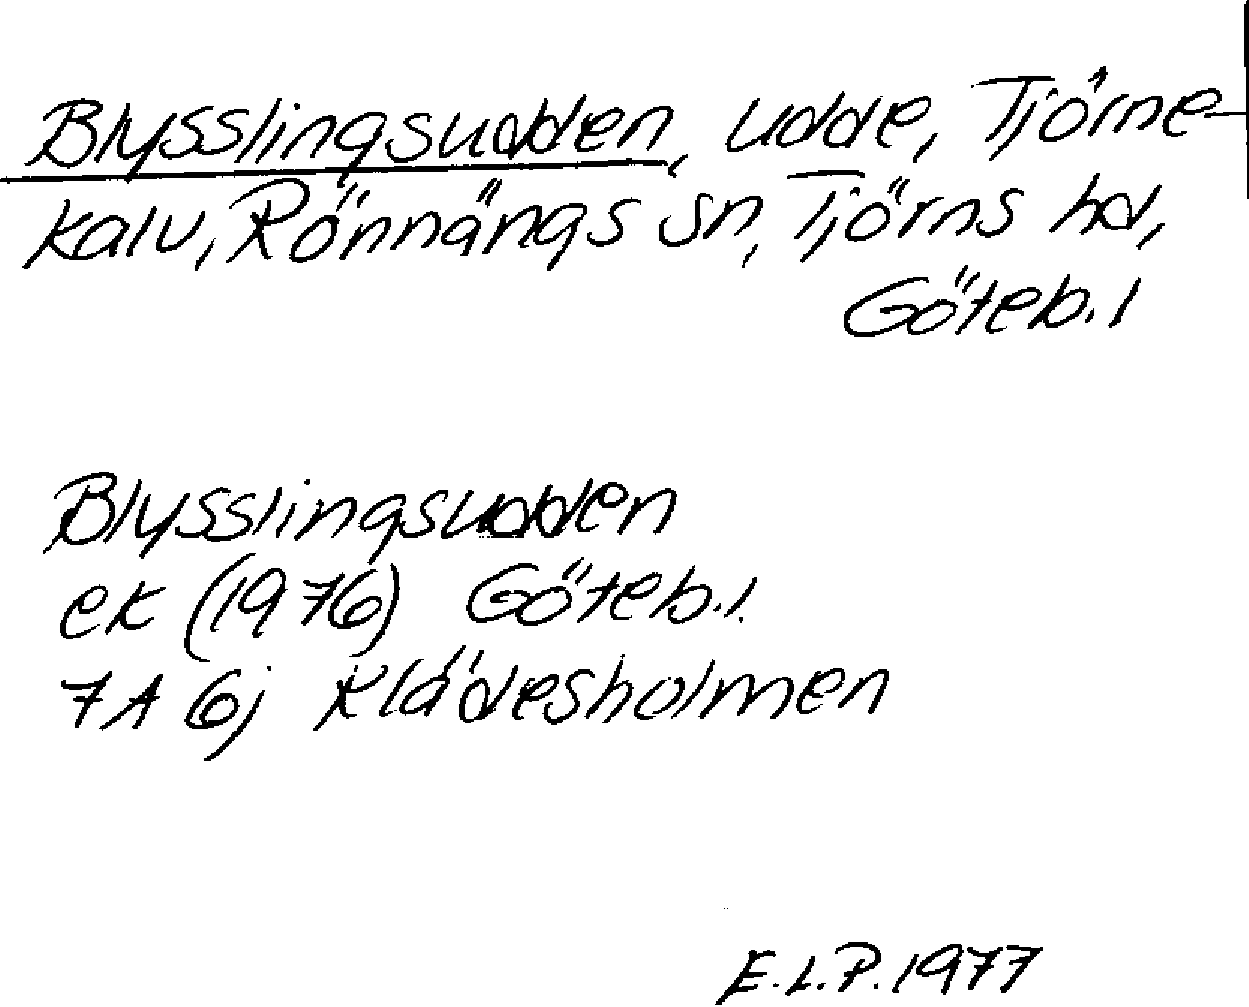 Blysslingsudden, udde, Tjörne-
kalv, Rönnängs sn, Tjörns hd,
Göteb. l
Blysslingsudden
ek (1976) Göteb. l.
7A 6j Klädesholmen
E.L.P. 1977